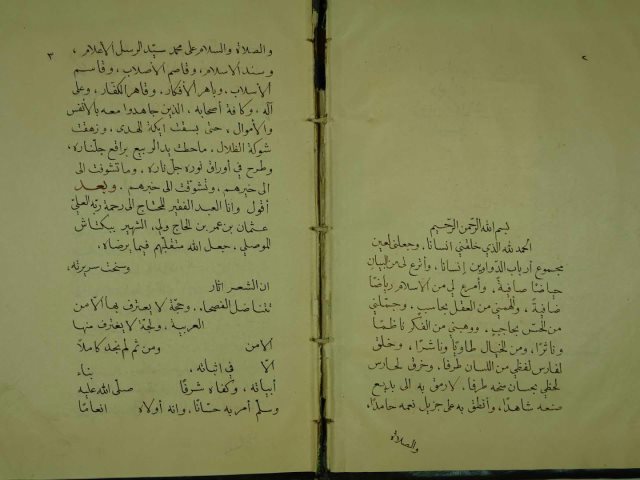 ٢
بسم الله الرحمن الرحيم
الحمد لله الذي خلقني انسانا، وجعلني لعين
مجموع أرباب الدواوين إنسانا، وأترع لي من البيان
حياضًا صافيةً، وأمرع لي من الاسلام رياضًا
ضافيةً، وألهمني من العقل بحاسب، وجملني
من الحس بحاجب، ووهبني من الفكر ناظمًا
وناثرًا، ومن الخيال طاويًا وناشرًا، وخلق
لفارس لفظي من اللسان طرفا، وخرق لحارس
لحظي بحسان منحه طرفا، لارمق به الى بديع
صنعه شاهدًا، وأنطق به على جزيل نعمه حامدًا،
والصلاة
٣
والصلاة والسلام على محمد سيد الرسل الأعلام،
وسند الاسلام، وقاصم الأصلاب، وقاسم
الأسلاب، وباهر الأفكار، وقاهر الكفار، وعلى
آله، وكافة أصحابه، الذين جاهدوا معه بالأنفس
والأموال، حتى بسقت ايكة الهدى، وزهقت
شوكة الضلال، ماحك يد الربيع براقع جلناره،
وطرح في أوراق نوره جل ناره، وما تشوفت الى
الى خيرهم، وتشوقت الى خبرهم، وبعد
أقول وانا العبد الفقير المحتاج الى رحمة ربه العلي
عثمان بن عمر بن الحاج ولي، الشهير ببكتاش
الموصلي، جعل الله متقلبهم فيما برضاه،
وسنحت سريرته،
ان الشعر اثار
تتناضل الفصحاء، وحجة لا يعترف بها الا من
العربية، ولجة لا يغترف منها
الا من ومن ثم لم نجد كاملاً
الا في اثباته، بناء
أبياته، وكفاه شرفًا صلى الله عليه
وسلم أمر به حسانا، وانه أولاه انعامًا